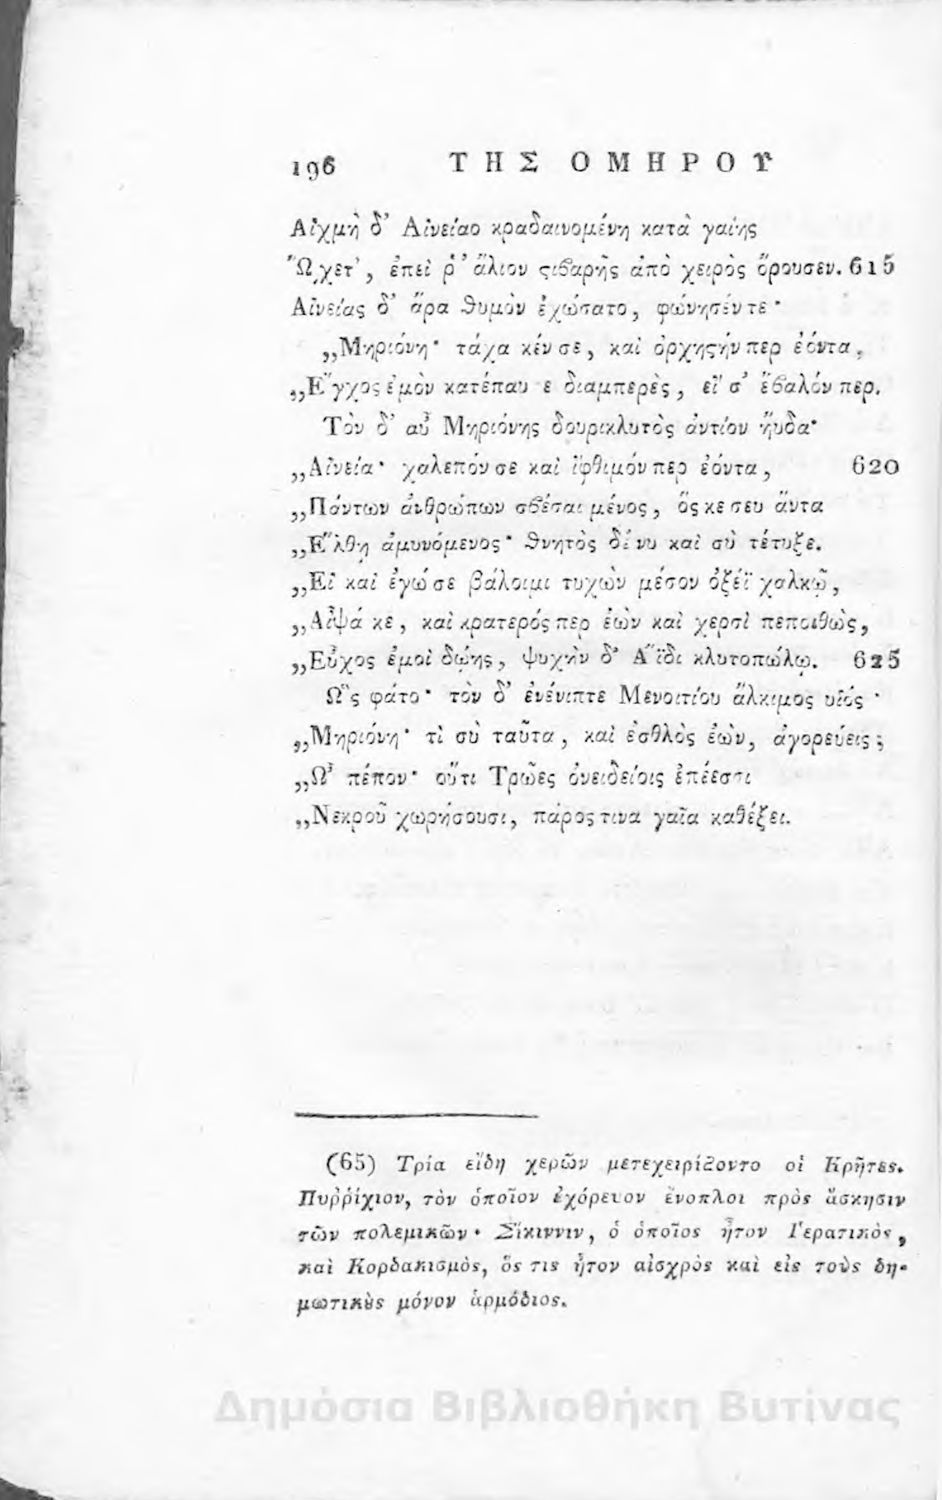 196 ΤΗΣ ΟΜΗΡΟΥ
Αἰχμὴ δ' Αἰνείαο κραδαινομένη κατὰ γαίης
Ὤχετ', ἐπεὶ ῥ' ἅλιον ϛιβαρῆς ἀπὸ χειρὸς ὄρουσεν. 615
Αἰνείας δ' ἄρα θυμὸν ἐχώσατο, φώνησέν τε·
„Μηριόνη· τάχα κέν σε, καὶ ὀρχηϛήν περ ἐόντα,
„Ἔγχος ἐμὸν κατέπαυ ε διαμπερὲς, εἴ σ' ἔβαλόν περ.
Τὸν δ' αὖ Μηριόνης δουρικλυτὸς ἀντίον ηὔδα·
„Αἰνεία· χαλεπόν σε καὶ ἴφθιμόν περ ἐόντα, 620
„Πάντων ἀνθρώπων σβέσαι μένος, ὅς κε σευ ἄντα
„Ἔλθῃ ἀμυνόμενος· θνητὸς δέ νυ καὶ σὺ τέτυξε.
„Εἰ καὶ ἐγώ σε βάλοιμι τυχὼν μέσον ὀξέϊ χαλκῷ,
„Αἶψά κε, καὶ κρατερός περ ἐὼν καὶ χερσὶ πεποιθὼς,
„Εὖχος ἐμοὶ δῴης, ψυχὴν δ' Ἄϊδι κλυτοπώλῳ. 625
Ὣς φάτο· τὸν δ' ἐνένιπτε Μενοιτίου ἄλκιμος υἱός·
„Μηριόνη· τὶ σὺ ταῦτα, καὶ ἐσθλὸς ἐὼν, ἀγορεύεις;
„Ὦ πέπον· οὔτι Τρῶες ὀνειδείοις ἐπέεσσι
„Νεκροῦ χωρήσουσι, πάρος τινα γαῖα καθέξει.
(65) Τρία εἴδη χερῶν μετεχειρίζοντο οἱ Κρῆτες.
Πυῤῥίχιον, τὸν ὁποῖον ἐχόρευον ἔνοπλοι πρὸς ἄσκησιν
τῶν πολεμικῶν· Σίκιννιν, ὁ ὁποῖος ἦτον Ἱερατικὸς,
καὶ Κορδακισμὸς, ὅς τις ἦτον αἰσχρὸς καὶ εἰς τοὺς δη-
μωτικȣς μόνον ἁρμόδιος.
Δημόσια Βιβλιοθήκη Βυτίνας